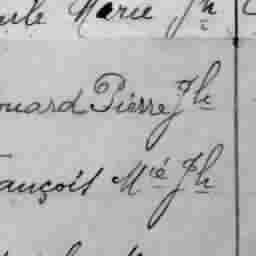 Marie Jh
ouard Pierre Jh
ançois Mié Jh